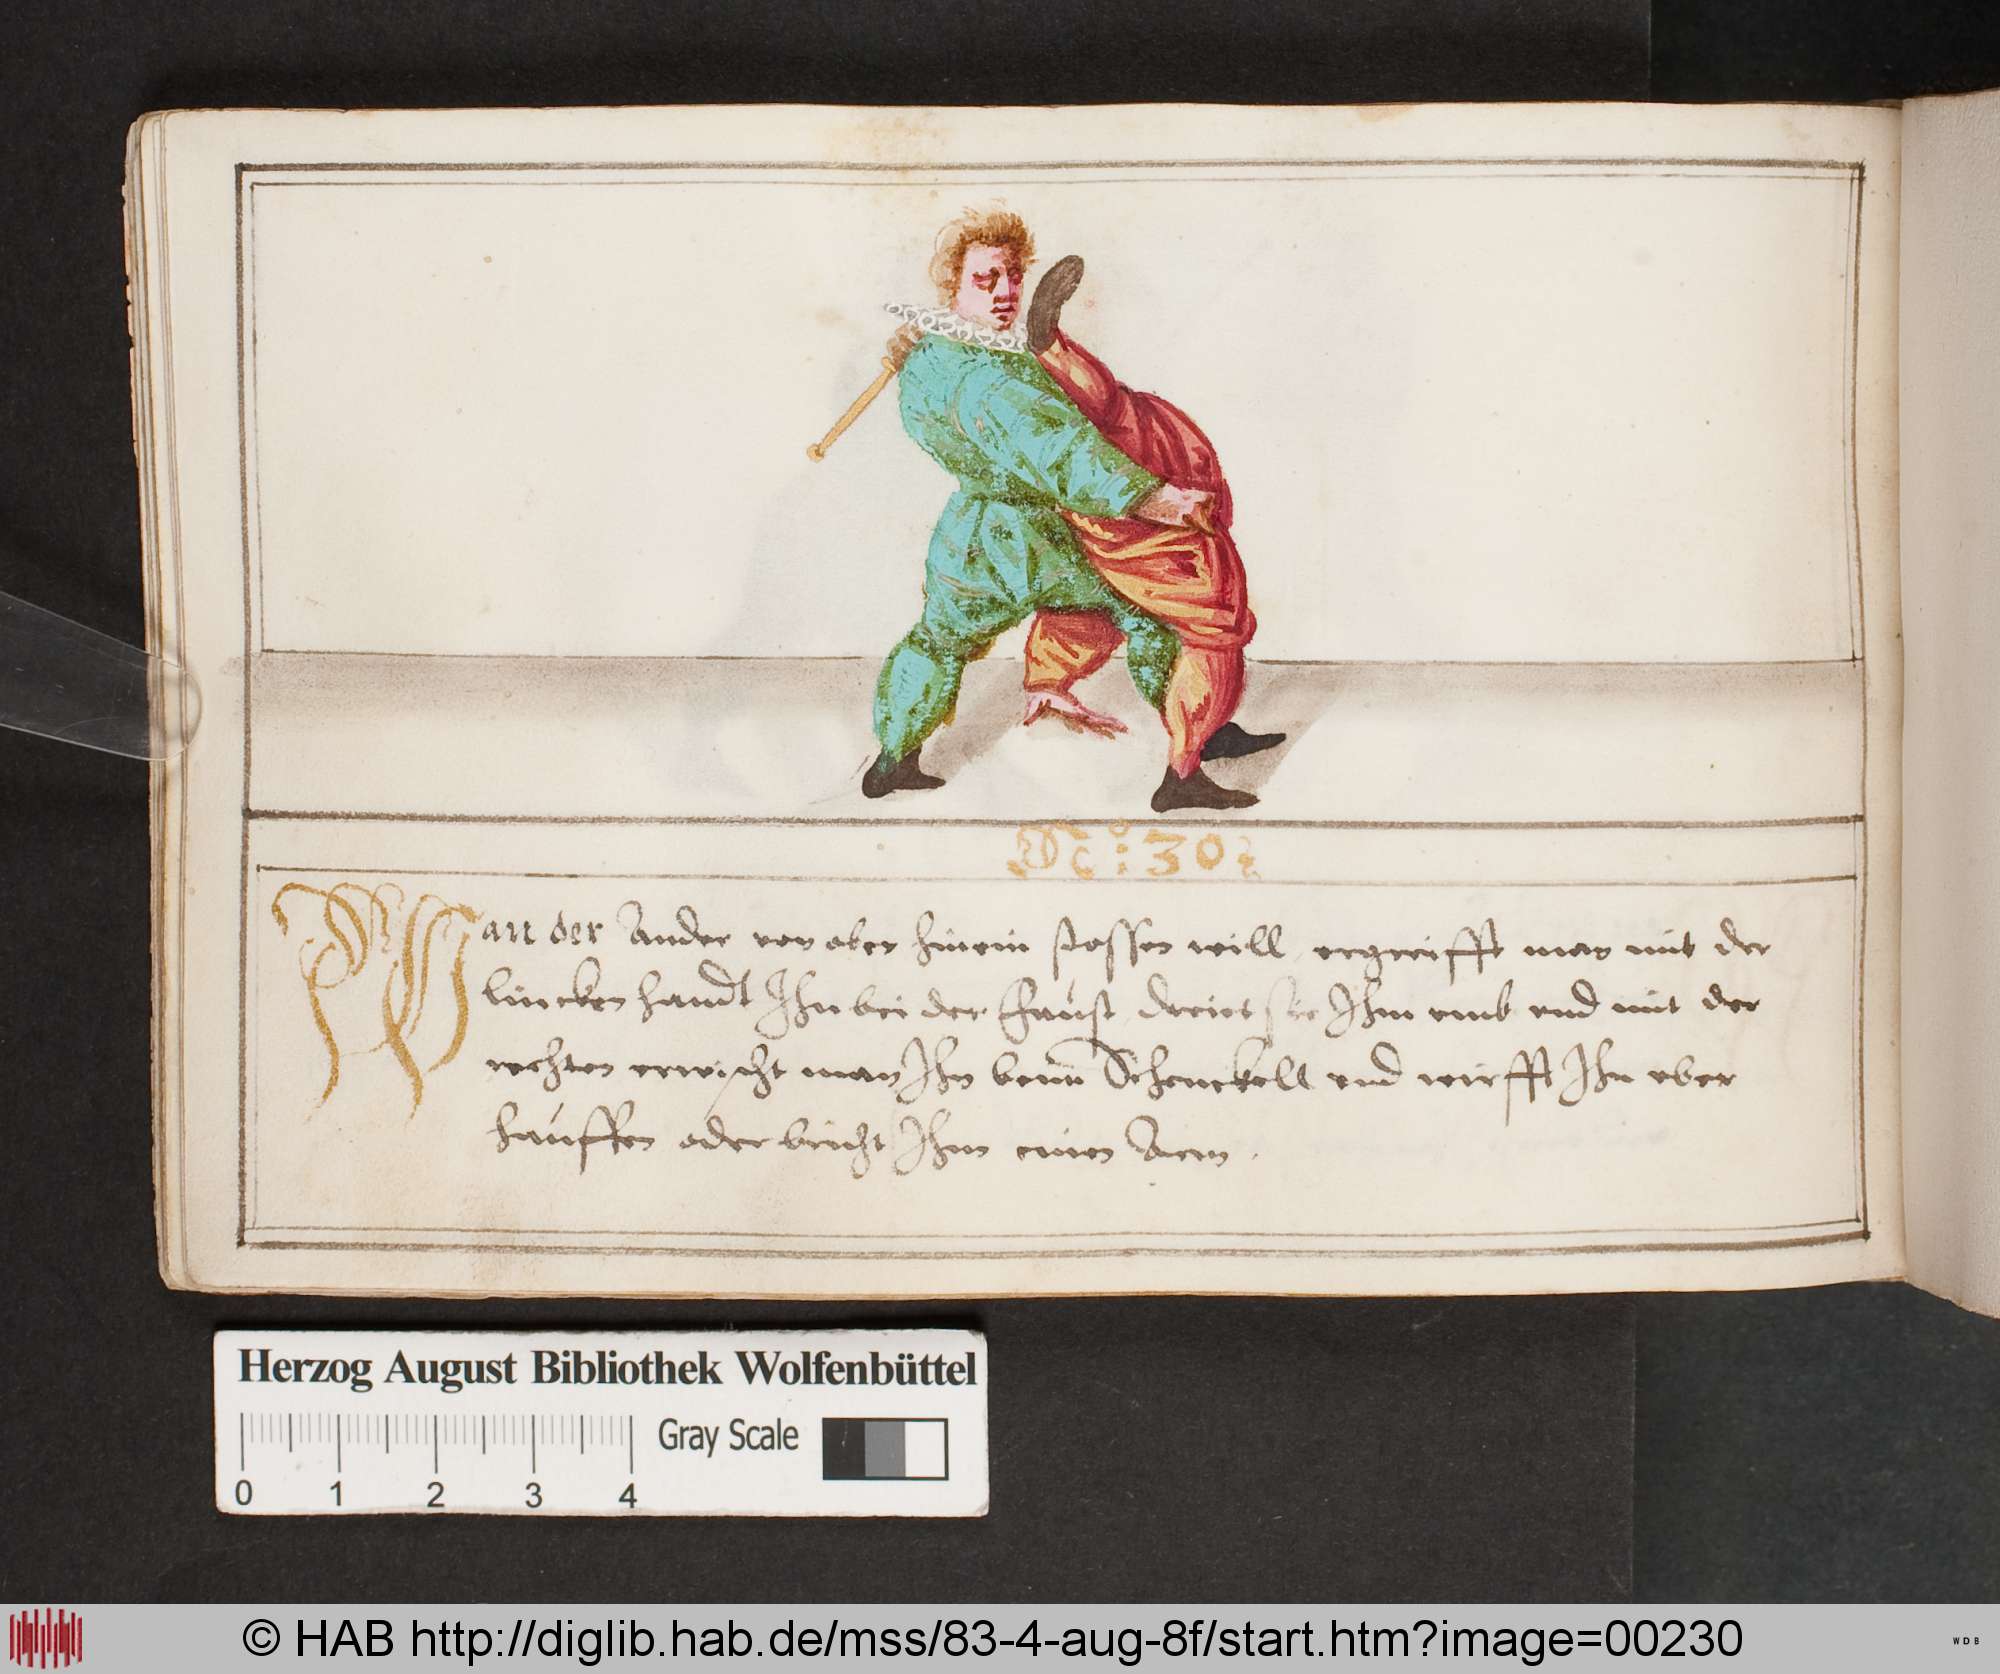 No: 30:
Wan der Ander von oben hinein stossen will, ergreifft man mit der
lincken handt Ihn bei der Faust dreiet sie Ihm umb und mit der
rechten erwischt man Ihn beim Schenckell und wirfft Ihn uber
hauffen oder bricht Ihm einen Arm.
Herzog August Bibliothek Wolfenbüttel
Gray Scale
0 1 2 3 4
© HAB http://diglib.hab.de/mss/83-4-aug-8f/start.htm?image=00230
WDB